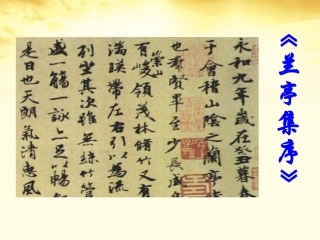 《兰亭集序》
永和九年歲在癸丑暮春
于會稽山陰之蘭亭脩
也羣賢畢至少長咸
有崇山峻領茂林脩竹又有
湍暎帶左右引以為流
列坐其次雖無絲竹管
盛一觴一詠亦足以暢
是日也天朗氣清惠風